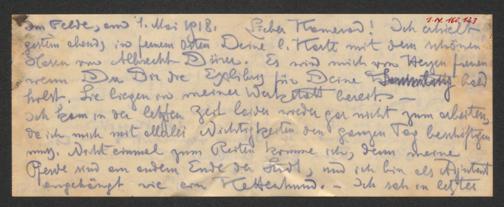 Im Felde, am 1. Mai 1918. Lieber Kamerad! Ich erhielt
gestern abends in fernem Osten Deine l. Karte mit dem schönen
Hasen von Albrecht Dürer. Es wird mich von Herzen freuen
wenn Du Dir die Exlibris für Deine Sammlung bald
holst. Sie liegen in meiner Werkstatt bereit. –
Ich kam in der letzten Zeit leider wieder gar nicht zum arbeiten,
da ich mich mit allerlei Nichtigkeiten den ganzen Tag beschäftigen
muss. Nicht einmal zum Reiten komme ich, denn meine
Pferde sind am andern Ende der Stadt, und ich bin als Adjutant
angehängt wie ein Kettenhund. – Ich sah in letzter